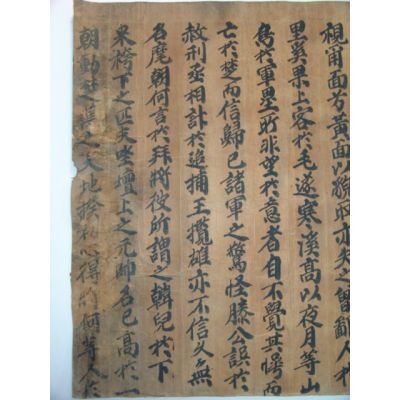 視甯面方黃面以貌取亦失之曾人於
里奚果上客於毛遂寒溪高以夜月等山
烏於軍壘所非望於意者自不覺其愕而
亡於楚而信歸已諸軍之驚怪滕公詎於
赦刑丞相計於追捕王攬雄亦不信久無
名麾朝何言於拜將彼所謂之韓兒於下
來袴下之匹夫坐壇上之元帥名已高於一
朝動之人大地心得將何等人於